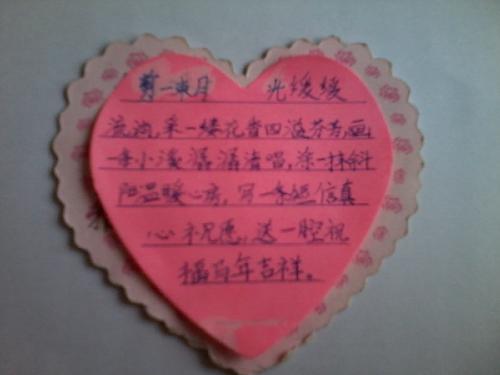 剪一束月 光缓缓
流淌,采一缕花香四溢芬芳,画
一条小溪潺潺清唱,涂一抹斜
阳温暖心房,写一条短信真
心祝愿,送一腔祝
福百年吉祥。